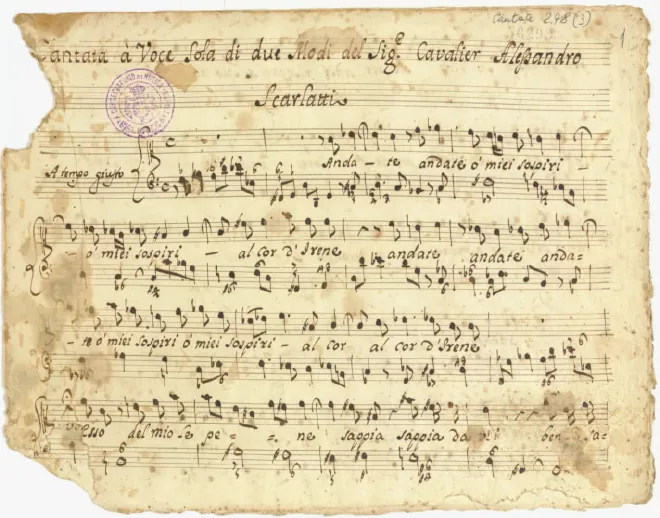 Cantate 298 (3)
1
Cantata à Voce Sola di due Modi del Sig.e Cavalier Alessandro
Scarlatti
Anda - te andate ò miei sospiri -
A tempo giusto
- ò miei sospiri - al cor d'Irene andate andate anda=
- te ò miei sospiri ò miei sospiri - al cor al cor d'Irene
del mio se pe - = ne sappia sappia da ben sa-